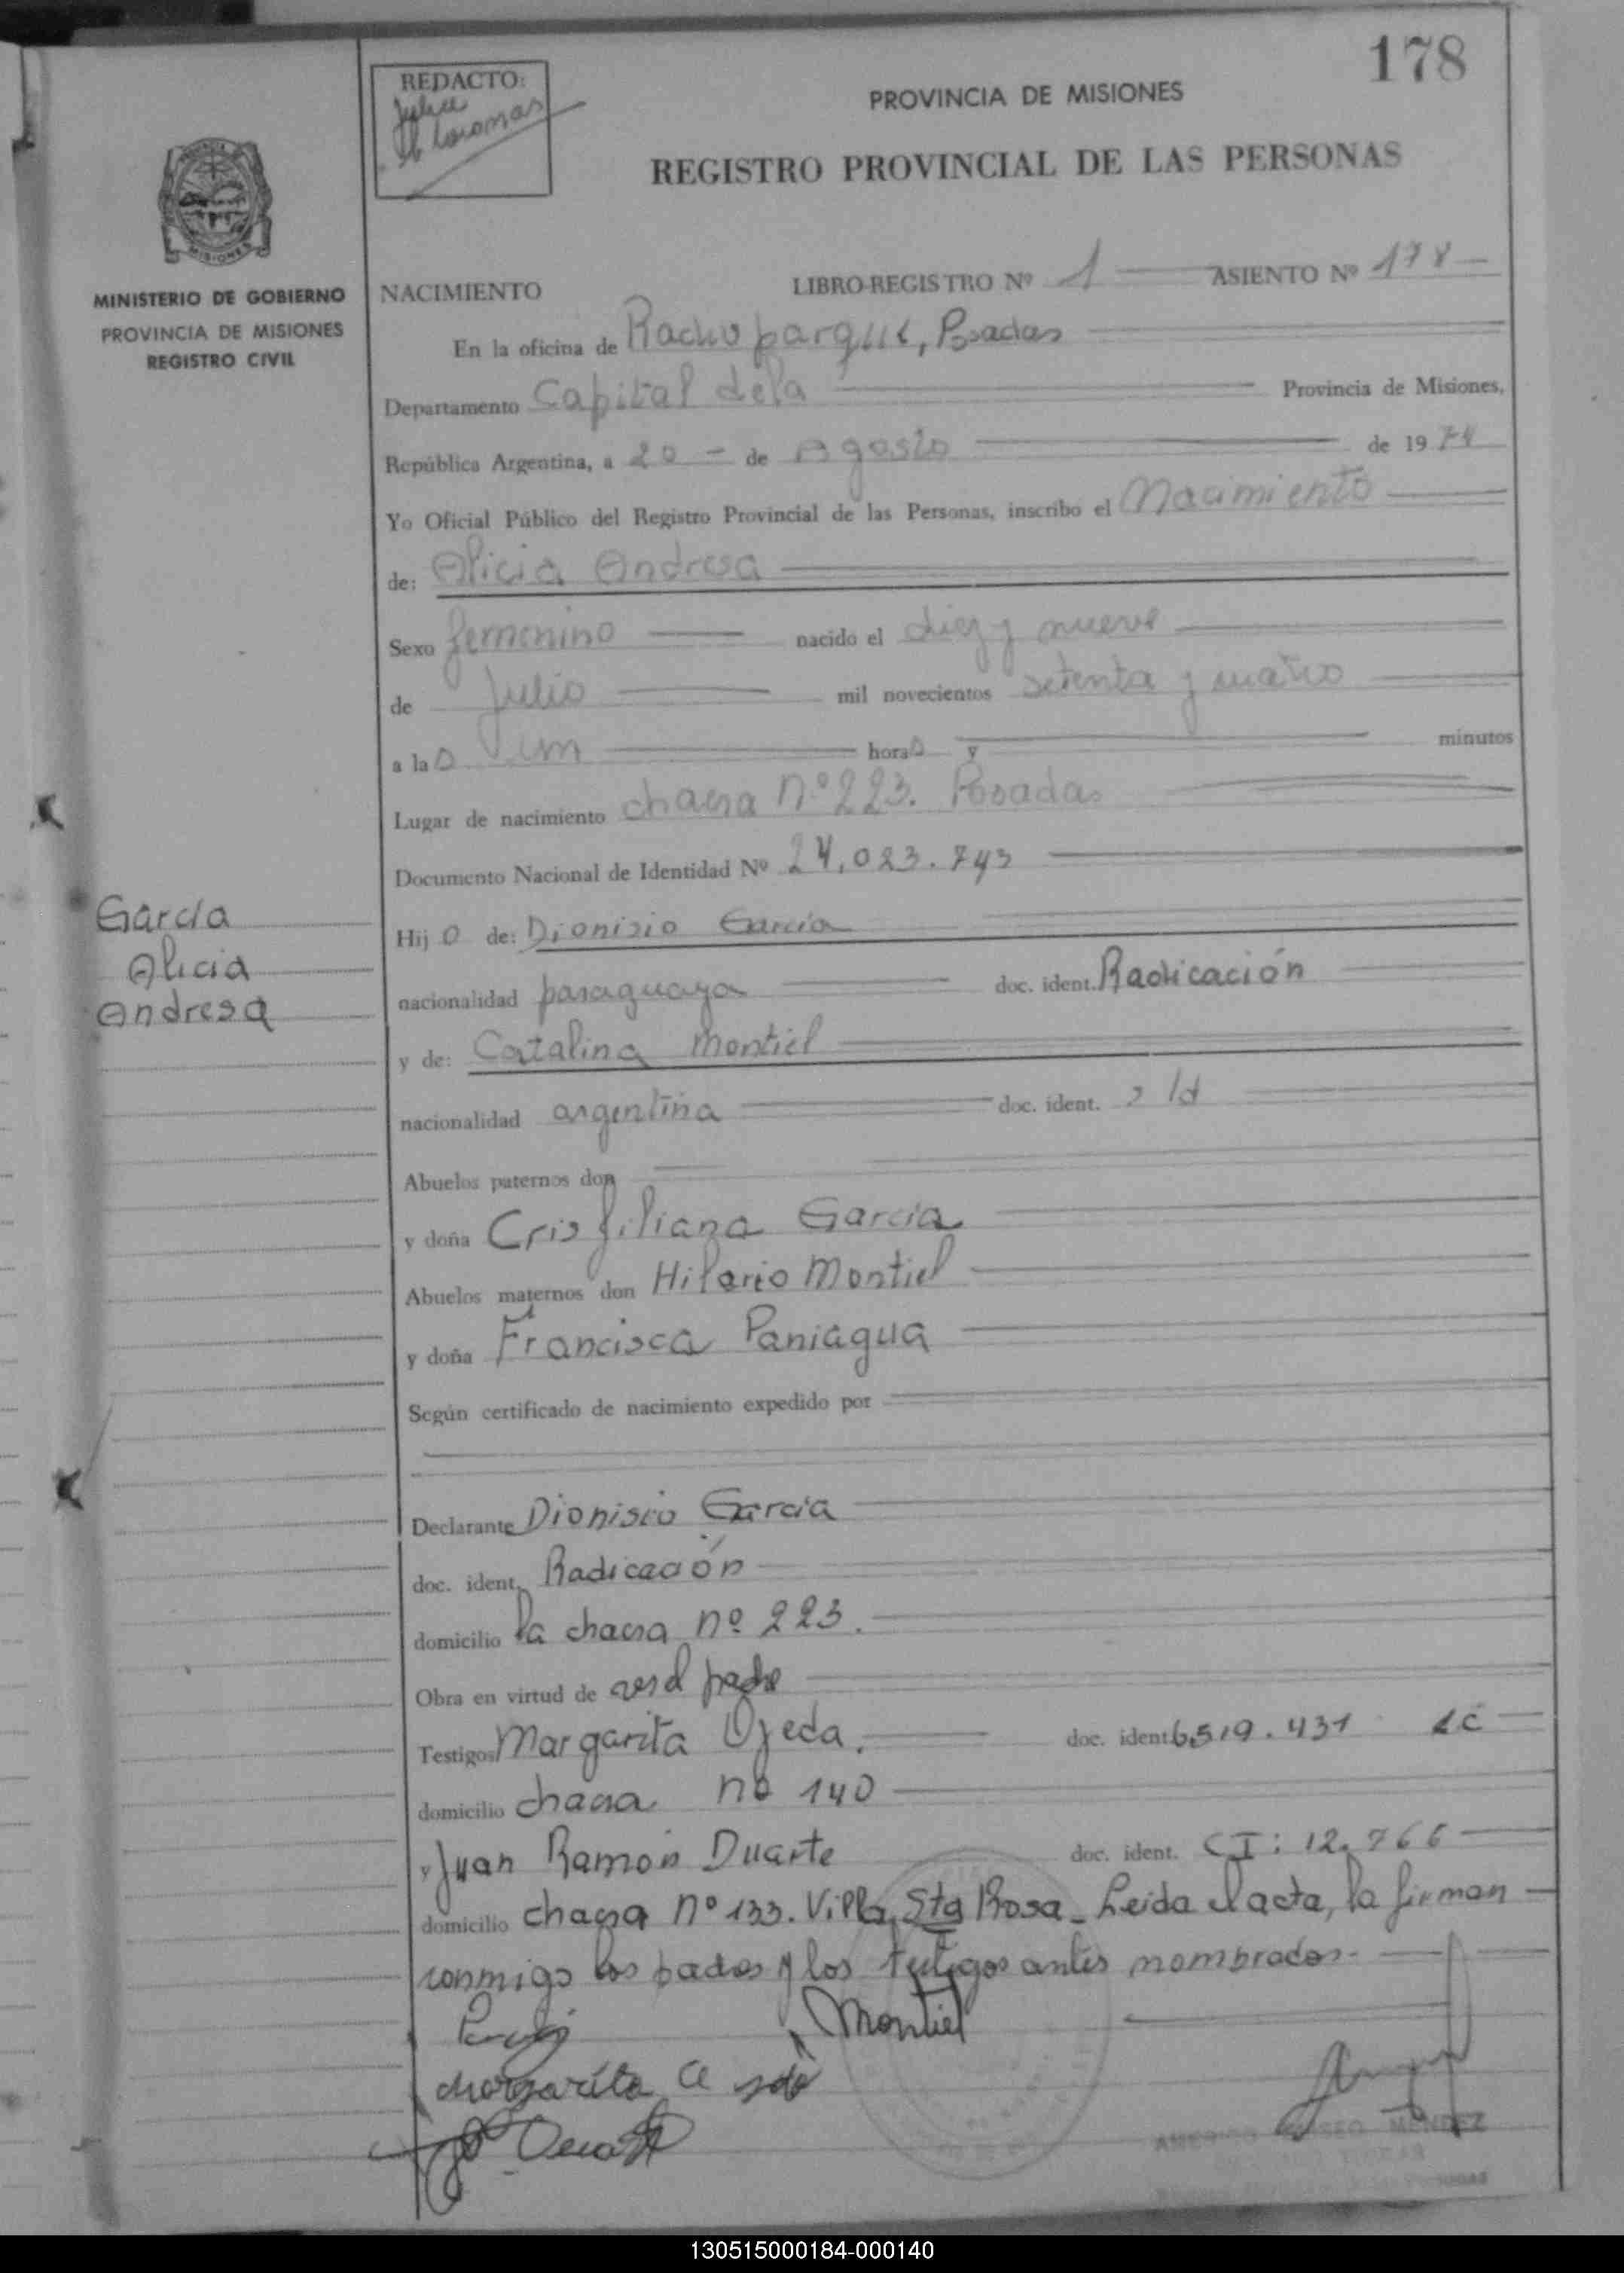 178
REDACTO:
PROVINCIA DE MISIONES
REGISTRO PROVINCIAL DE LAS PERSONAS
MINISTERIO DE GOBIERNO
PROVINCIA DE MISIONES
REGISTRO CIVIL
NACIMIENTO LIBRO-REGISTRO Nº 1 ASIENTO Nº 178
En la oficina de Posadas
Departamento Capital de la Provincia de Misiones,
República Argentina, a 20 de Agosto de 1974
Yo Oficial Público del Registro Provincial de las Personas, inscribo el Nacimiento
de: Alicia Andresa
Sexo femenino nacido el diez y nueve
de Julio mil novecientos setenta y cuatro
a la hora y minutos
Lugar de nacimiento chacra nº 223. Posadas
Documento Nacional de Identidad Nº 24,023.743
García
Alicia
Andresa
Hij de: Dionisio García
nacionalidad paraguaya doc. ident. Radicación
y de: Catalina Montiel
nacionalidad argentina doc. ident.
Abuelos paternos don
y doña Crisfiliana Garcia
Abuelos maternos don Hilario Montiel
y doña Francisca Paniagua
Según certificado de nacimiento expedido por
Declarante Dionisio García
doc. ident. Radicación
domicilio la chacra nº 223.
Obra en virtud de ser el padre
Testigos Margarita Ojeda. doc. ident. 6.519.431 LC
domicilio chacra nº 140
y Juan Ramón Duarte doc. ident. CI: 12.766
domicilio chacra nº 133. Villa Sta Rosa - Leida el acta, la firman
conmigo los padres y los testigos antes nombrados-
Montiel
Margarita
MENDEZ
130515000184-000140